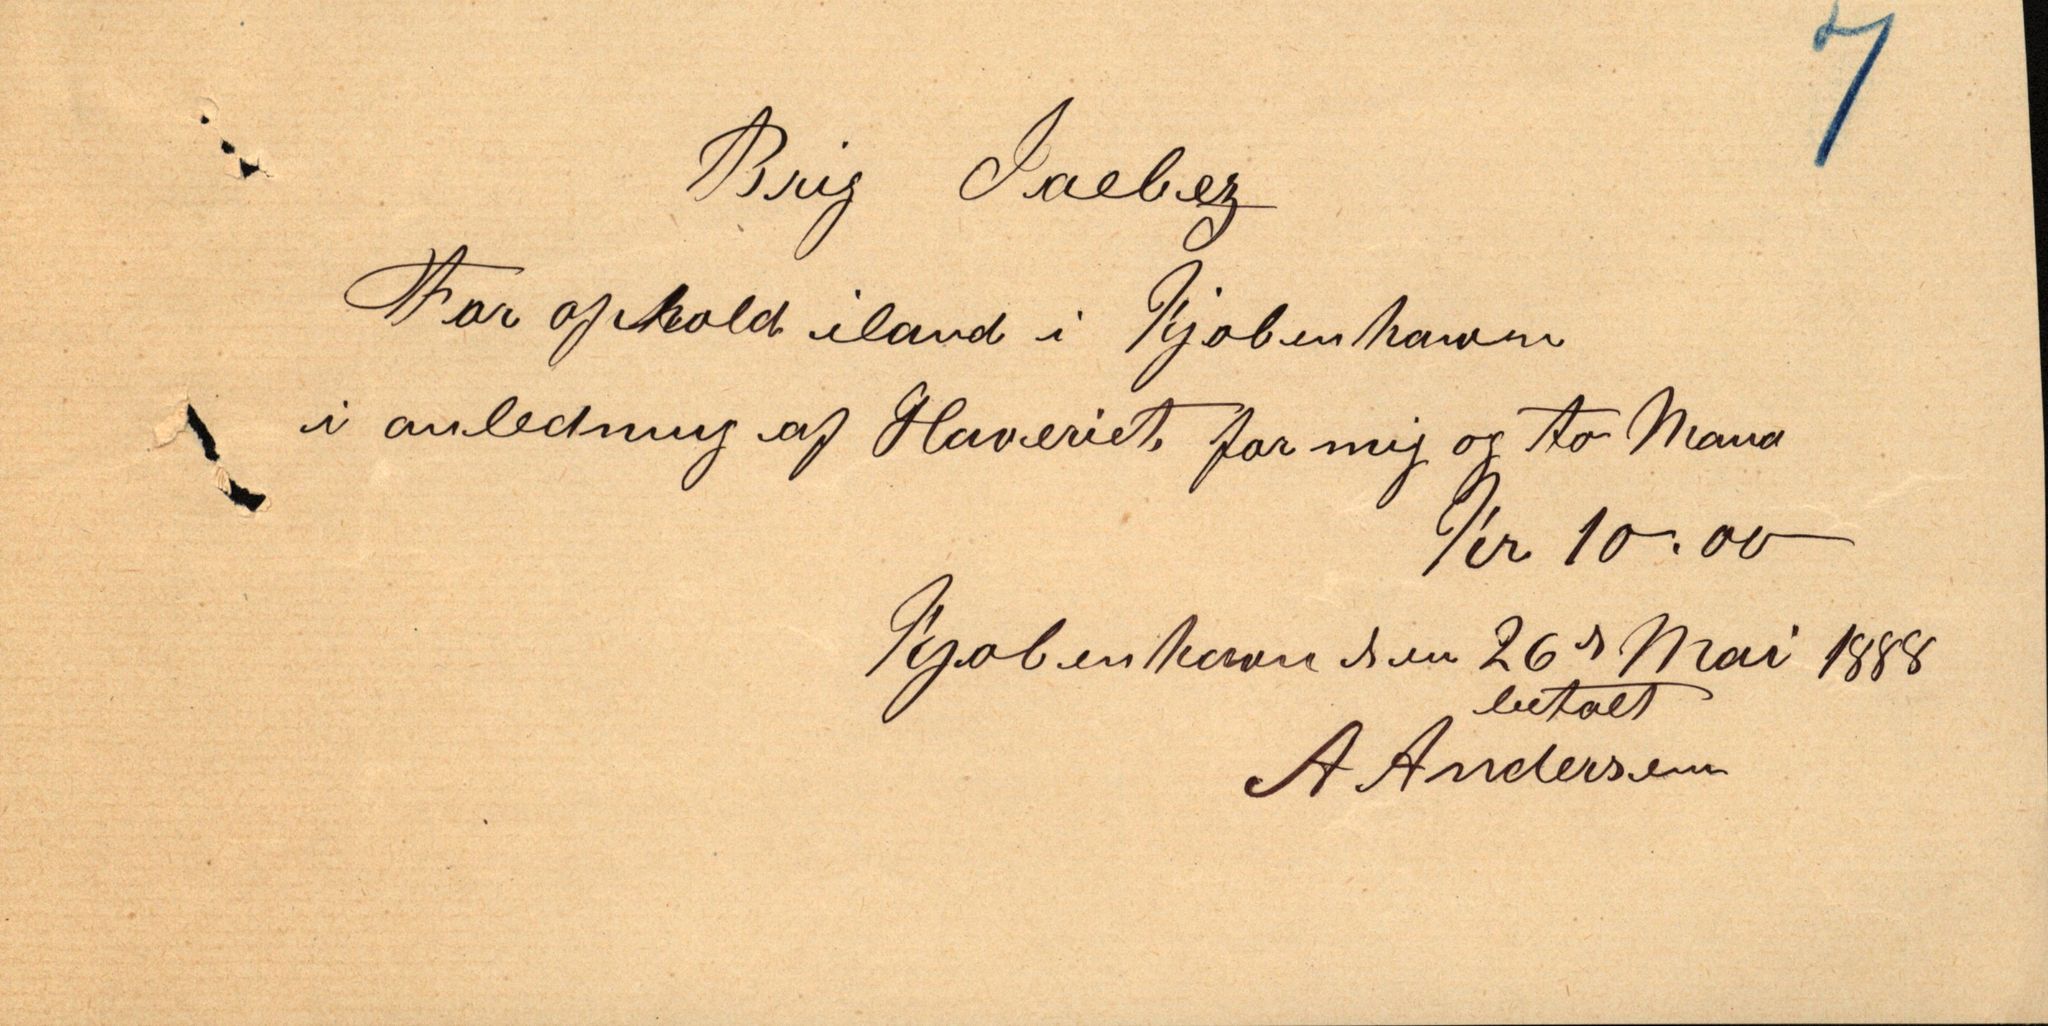 7
Brig Jaebez
For ophold iland i Kjobenhavn
i anledning af Havariet for mig og to Mand
Kr 10.00
Kjobenhavn den 26d Mai 1888
betalt
A Andersen